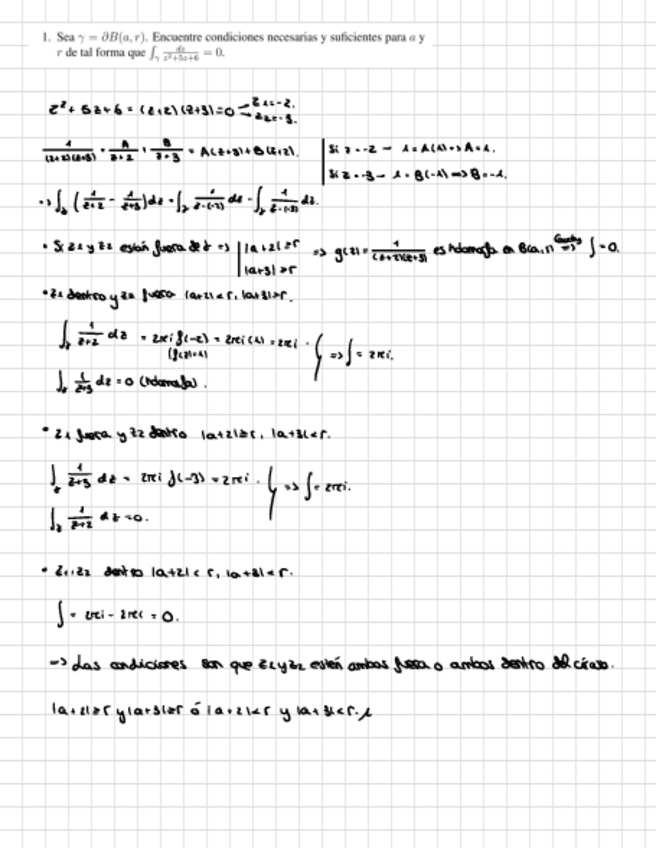 1. Sea γ = ∂B(a, r). Encuentre condiciones necesarias y suficientes para a y
r de tal forma que ∫_γ dz/(z²+5z+6) = 0.
z² + 5z + 6 = (z+2)(z+3) = 0 → z₁ = -2. z₂ = -3.
1/((z+2)(z+3)) = A/(z+2) + B/(z+3) = A(z+3) + B(z+2). | Si z = -2 → 1 = A(1) → A = 1.
Si z = -3 → 1 = B(-1) ⇒ B = -1.
→ ∫_γ (1/(z+2) - 1/(z+3)) dz = ∫_γ 1/(z-(-2)) dz - ∫_γ 1/(z-(-3)) dz.
• Si z₁ y z₂ están fuera de γ ⇒ | |a+2| ≥ r |a+3| ≥ r ⇒ g(z) = 1/((z+2)(z+3)) es holomorfa en B(a,r) Cauchy ⇒ ∫ = 0.
• z₁ dentro y z₂ fuera |a+2| < r, |a+3| ≥ r.
∫_γ 1/(z+2) dz = 2πi f(-2) = 2πi (1) = 2πi.
(f(z)=1)
} ⇒ ∫ = 2πi.
∫_γ 1/(z+3) dz = 0 (holomorfa).
• z₁ fuera y z₂ dentro |a+2| ≥ r, |a+3| < r.
∫_γ 1/(z+3) dz = 2πi f(-3) = 2πi. } ⇒ ∫ = 2πi.
∫_γ 1/(z+2) dz = 0.
• z₁, z₂ dentro |a+2| < r, |a+3| < r.
∫ = 2πi - 2πi = 0.
⇒ Las condiciones son que z₁ y z₂ estén ambos fuera o ambos dentro del círculo.
|a+2| ≥ r y |a+3| ≥ r ó |a+2| < r y |a+3| < r.